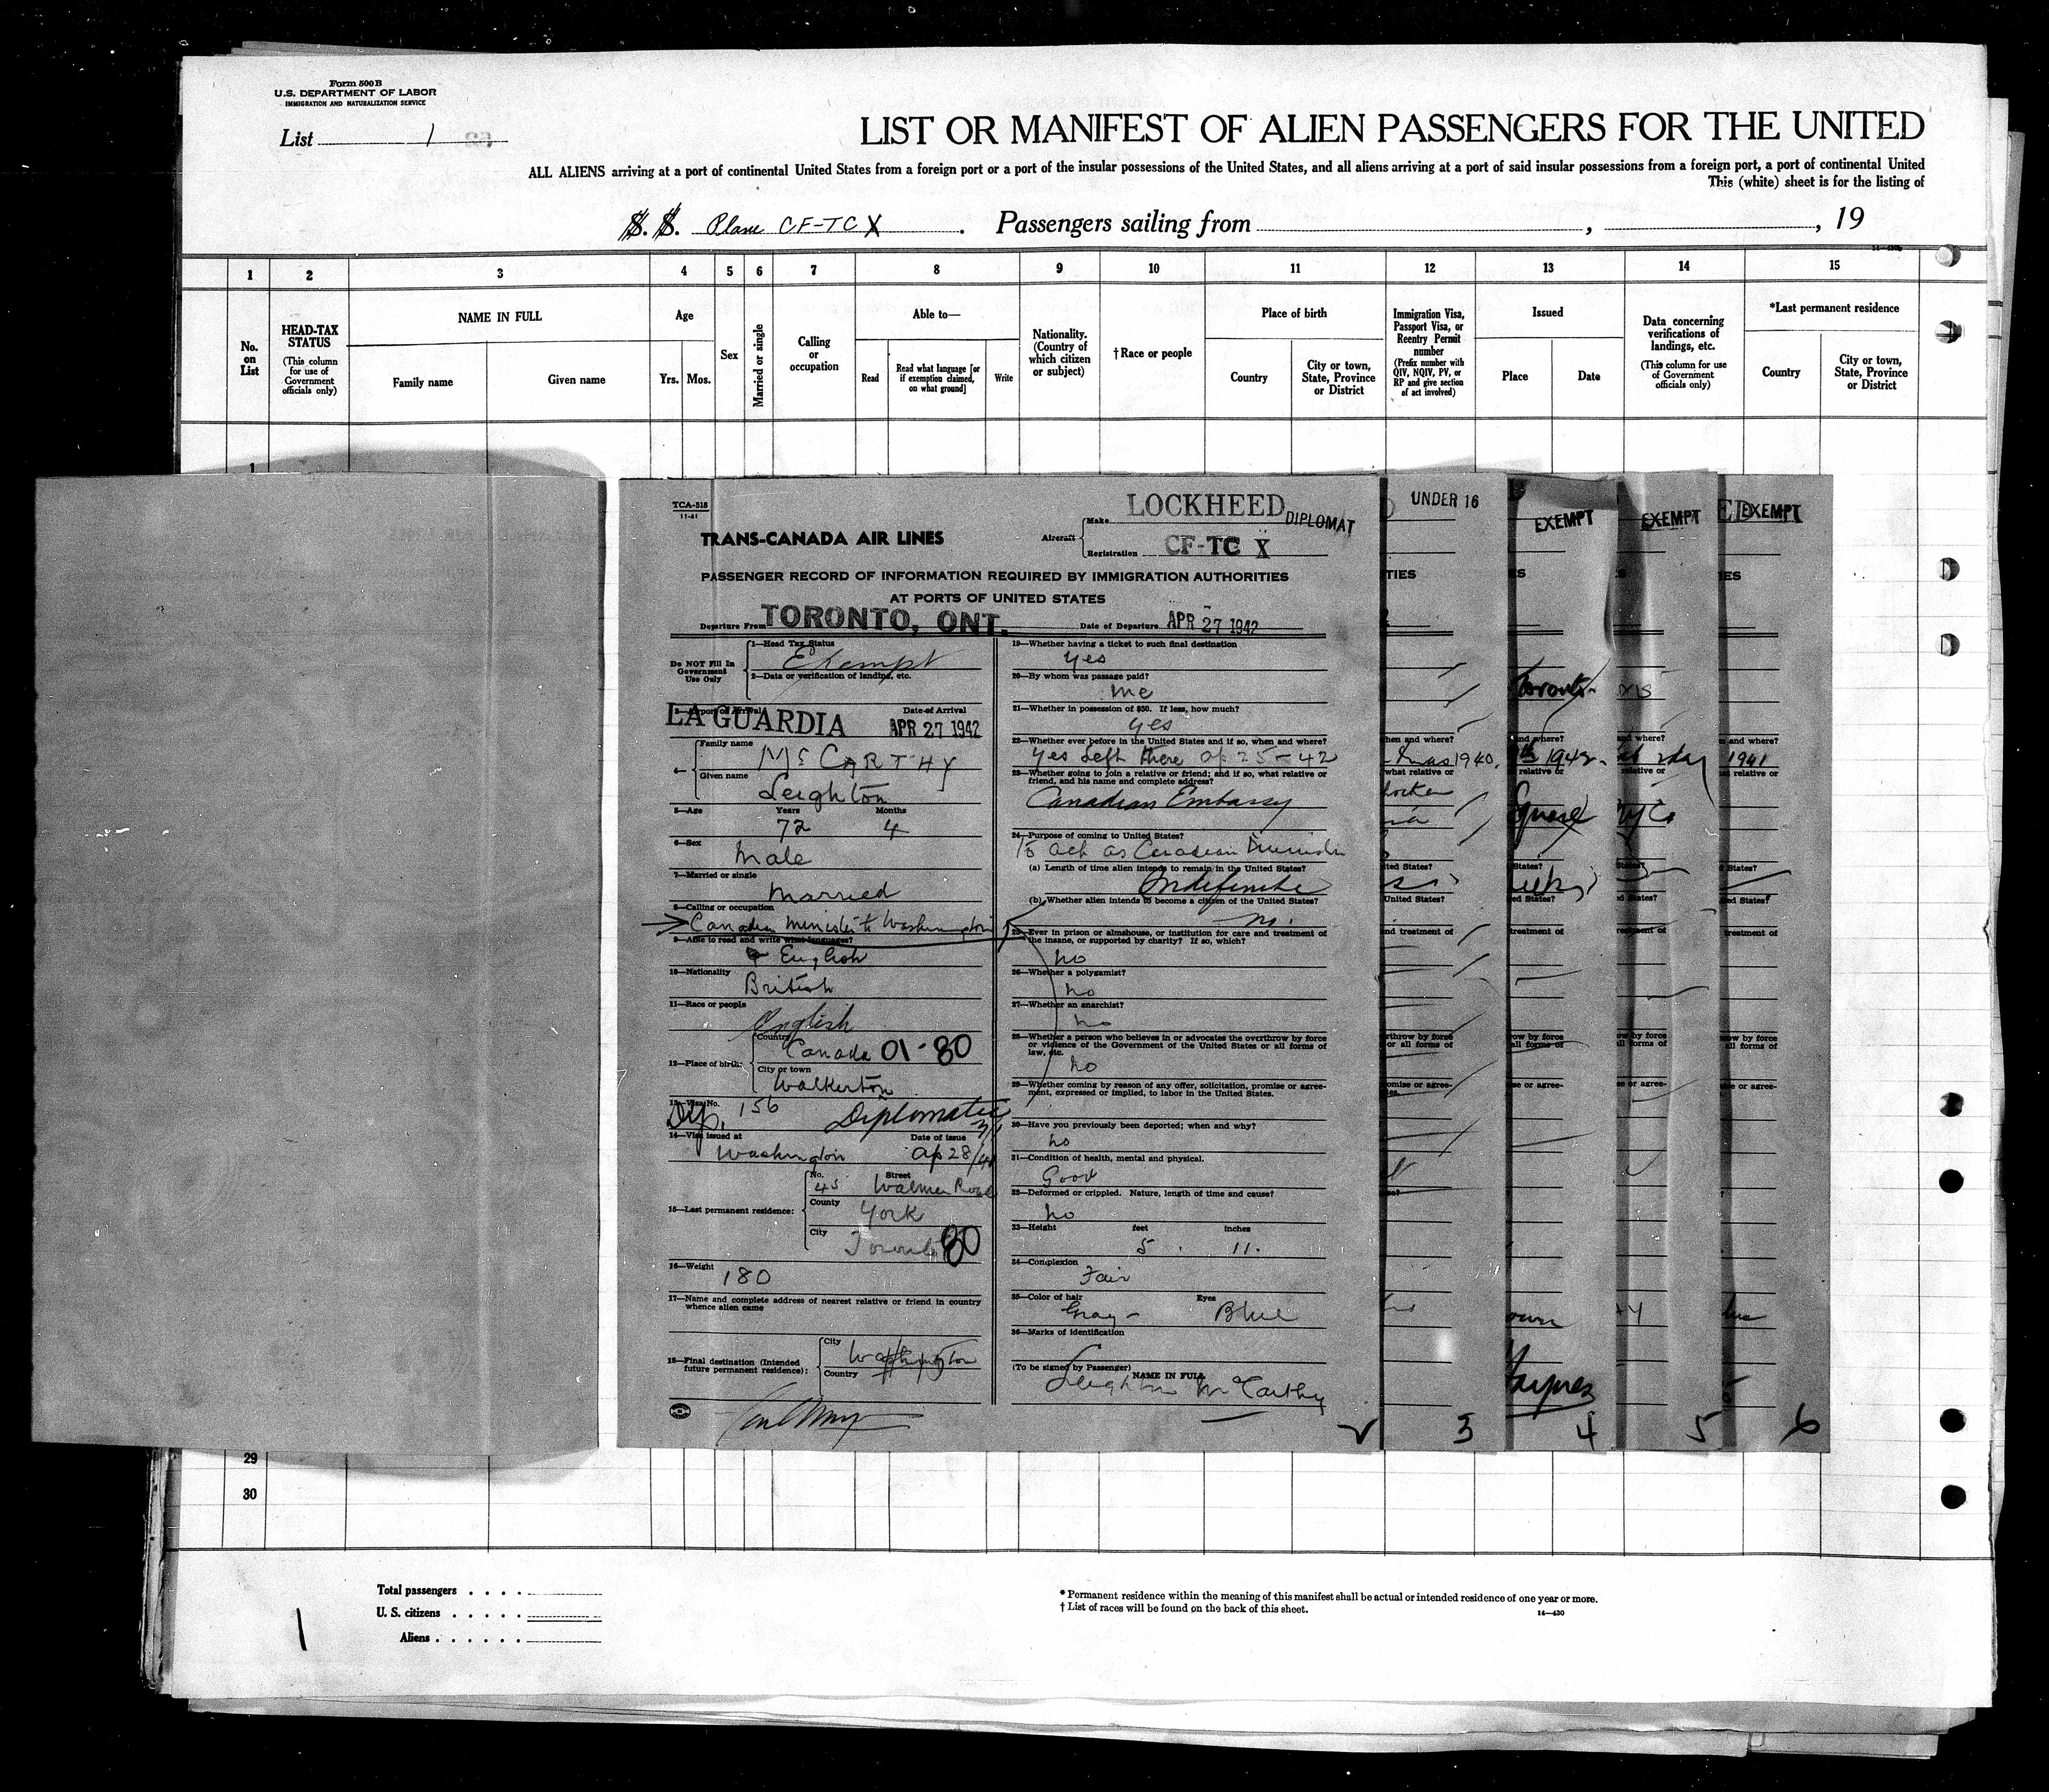 Form 500B
U.S. DEPARTMENT OF LABOR
IMMIGRATION AND NATURALIZATION SERVICE
List 1
LIST OR MANIFEST OF ALIEN PASSENGERS FOR THE UNITED
ALL ALIENS arriving at a port of continental United States from a foreign port or a port of the insular possessions of the United States, and all aliens arriving at a port of said insular possessions from a foreign port, a port of continental United
This (white) sheet is for the listing of
S. S. Plane CF-TCX. Passengers sailing from , , 19
1 2 3 4 5 6 7 8 9 10 11 12 13 14 15
No. on List
HEAD-TAX STATUS
(This column for use of Government officials only)
NAME IN FULL
Family name
Given name
Age
Yrs.
Mos.
Sex
Married or single
Calling or occupation
Able to—
Read
Read what language [or if exemption claimed, on what ground]
Write
Nationality. (Country of which citizen or subject)
†Race or people
Place of birth
Country
City or town, State, Province or District
Immigration Visa, Passport Visa, or Reentry Permit number
(Prefix number with QIV, NQIV, PV, or RP and give section of act involved)
Issued
Place
Date
Data concerning verifications of landings, etc.
(This column for use of Government officials only)
*Last permanent residence
Country
City or town, State, Province or District
1
TCA-518
11-41
TRANS-CANADA AIR LINES
Aircraft
Make LOCKHEED
DIPLOMAT
Registration CF-TC X
PASSENGER RECORD OF INFORMATION REQUIRED BY IMMIGRATION AUTHORITIES
AT PORTS OF UNITED STATES
Departure From TORONTO, ONT.
Date of Departure APR 27 1942
Do NOT Fill In Government Use Only
1—Head Tax Status
Exempt
2—Data or verification of landing, etc.
3—Airport of Arrival
Date of Arrival
LA GUARDIA APR 27 1942
4—
Family name
McCARTHY
Given name
Leighton
5—Age Years Months
72 4
6—Sex
Male
7—Married or single
Married
8—Calling or occupation
Canadian Minister to Washington
9—Able to read and write what languages?
English
10—Nationality
British
11—Race or people
English
12—Place of birth:
Country
Canada 01-80
City or town
Walkerton
13—Visa No.
Dip. 156 Diplomatic
14—Visa issued at Date of issue
Washington Ap 28/41
15—Last permanent residence:
No. Street
45 Walmer Road
County
York
City
Toronto 80
16—Weight
180
17—Name and complete address of nearest relative or friend in country whence alien came
18—Final destination (Intended future permanent residence):
City
Washington
Country
19—Whether having a ticket to such final destination
yes
20—By whom was passage paid?
me
21—Whether in possession of $50. If less, how much?
yes
22—Whether ever before in the United States and if so, when and where?
yes Left there ap 25-42
23—Whether going to join a relative or friend; and if so, what relative or friend, and his name and complete address?
Canadian Embassy
24—Purpose of coming to United States?
To act as Canadian Minister
(a) Length of time alien intends to remain in the United States?
Indefinite
(b) Whether alien intends to become a citizen of the United States?
no.
25—Ever in prison or almshouse, or institution for care and treatment of the insane, or supported by charity? If so, which?
no
26—Whether a polygamist?
no
27—Whether an anarchist?
no
28—Whether a person who believes in or advocates the overthrow by force or violence of the Government of the United States or all forms of law, etc.
no
29—Whether coming by reason of any offer, solicitation, promise or agreement, expressed or implied, to labor in the United States.
30—Have you previously been deported; when and why?
no
31—Condition of health, mental and physical.
Good
32—Deformed or crippled. Nature, length of time and cause?
no
33—Height feet inches
5 11.
34—Complexion
Fair
35—Color of hair Eyes
Gray Blue
36—Marks of identification
(To be signed by Passenger) NAME IN FULL
Leighton McCarthy
UNDER 16
EXEMPT
EXEMPT
EXEMPT
Toronto
1940.
1942
1941
2 3 4 5 6
29
30
Total passengers . . . .
U. S. citizens . . . . .
Aliens . . . . . .
1
* Permanent residence within the meaning of this manifest shall be actual or intended residence of one year or more.
† List of races will be found on the back of this sheet.
14—430